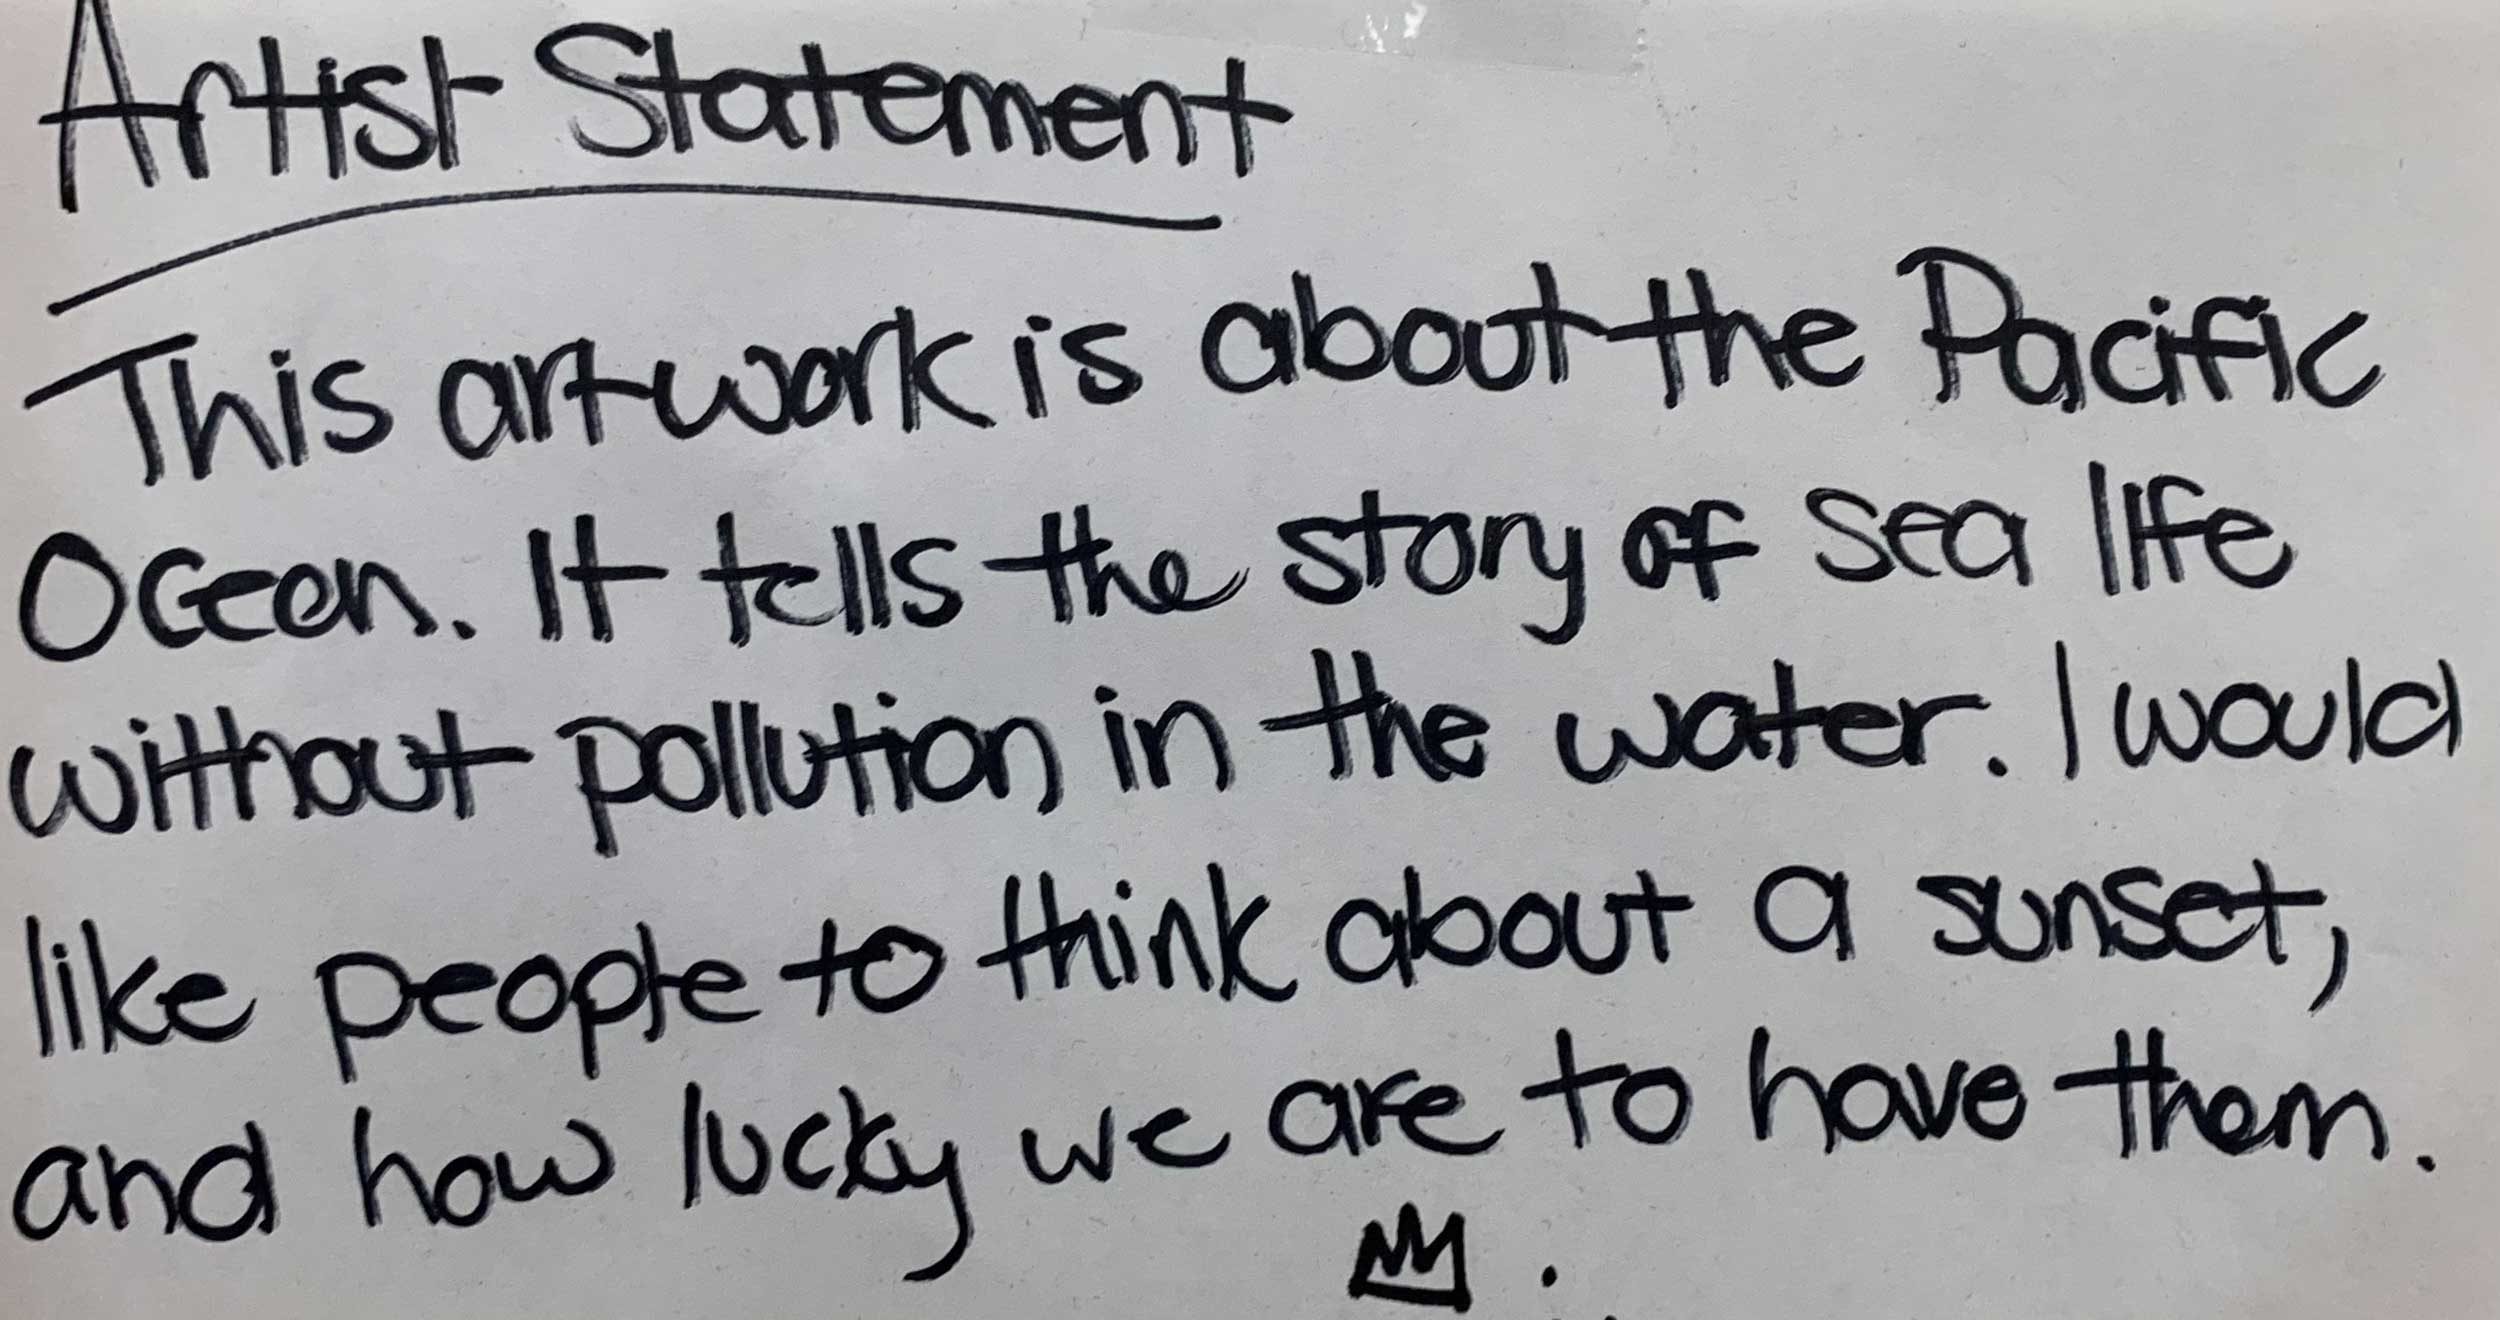 Artist Statement
This artwork is about the Pacific
Ocean. It tells the story of sea life
without pollution in the water. I would
like people to think about a sunset,
and how lucky we are to have them.